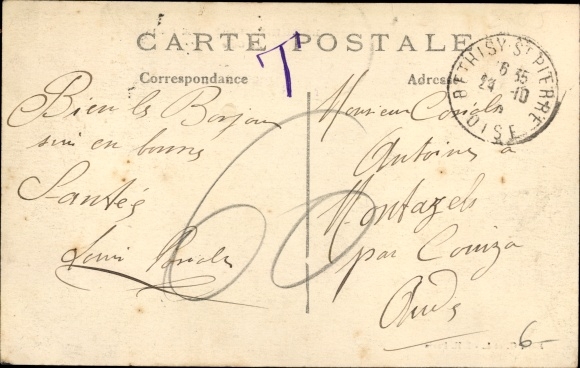 CARTE POSTALE
T
Correspondance
Adresse
BÉTHISY-ST PIERRE
16 35
24 - 10
OISE
Bien le Bonjour
suis en bonne
Santés
Louis
Monsieur
Antoine à
Montazels
par Couiza
Aude
60
6-